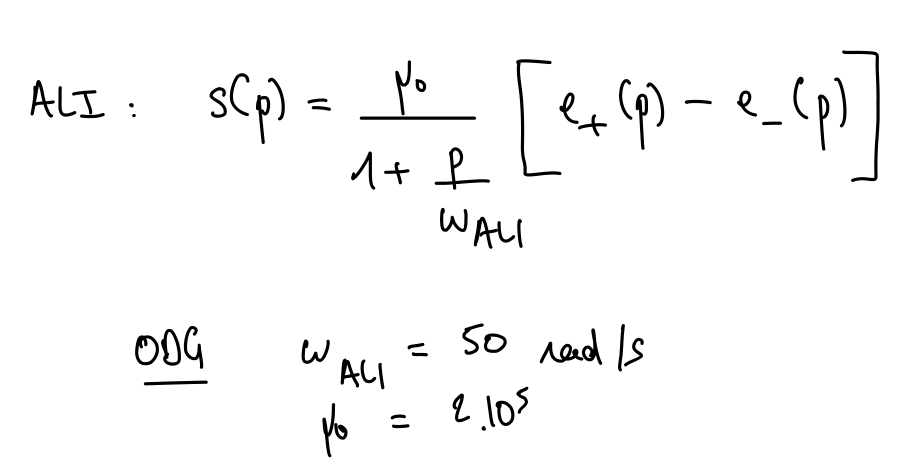 ALI : s(p) = μ₀ / (1 + p/ω_ALI) [e₊(p) − e₋(p)]
ODG ω_ALI = 50 rad/s
μ₀ = 2.10⁵